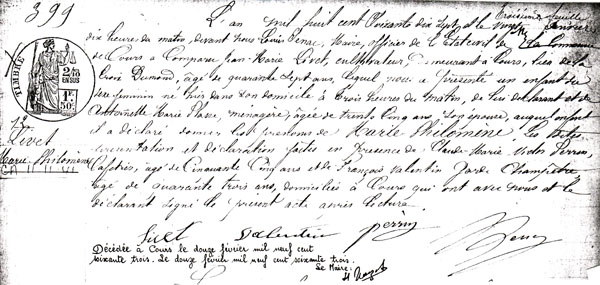 399
Troisième feuille
L'an mil huit cent soixante dix sept et le
dix heure du matin, devant nous Louis Perrer, Maire, officier de l'Etat civil de la Commune
de Cours a Comparu Jean Marie Livet, cultivateur demeurant à Cours, lieu de la
Croix Dumand, agé de quarante sept ans, lequel nous a présenté un enfant du
sexe féminin né hier dans son domicile à trois heures du matin, de lui déclarant et de
Antoinette Marie Plasse, ménagère, agée de trente cinq ans, son épouse, auquel enfant
il a déclaré donner les prénoms de Marie Philomène. Les dites
présentation et déclaration faites en présence de Claude Marie Perrin,
Cafetier, agé de Cinquante Cinq ans et de François Valentin Garde Champêtre
agé de quarante trois ans, domiciliés à Cours qui ont avec nous et le
déclarant signé le présent acte après lecture.
TIMBRE
2 10
1F
50c
Livet
Marie Philomène
Livet Valentin Perrin
Décédée à Cours le douze février mil neuf cent
soixante trois. Le douze février mil neuf cent soixante trois.
Le Maire: